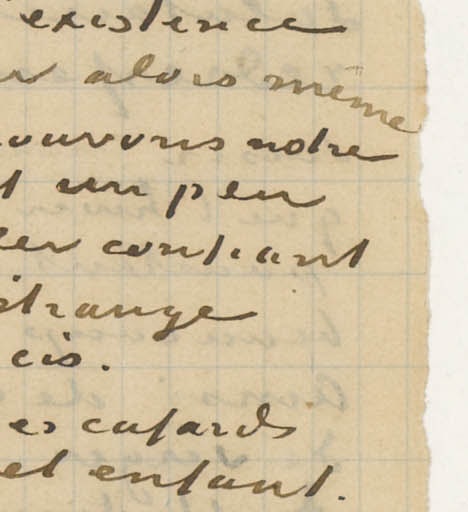 existence
alors même
ouvrons notre
un peu
er confiant
étrange
cis.
es cafards
et enfant.